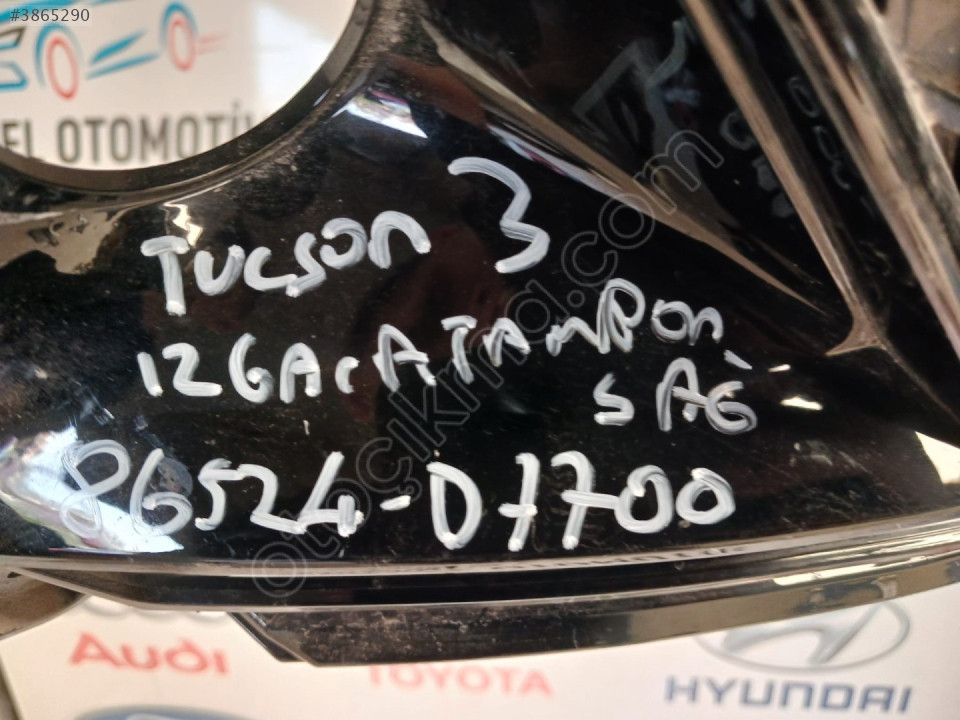 #3865290
EL OTOMOTİV
TUCSON 3
IZGARA TAMPON
SAĞ
86524-D7700
otocikma.com
Audi
TOYOTA
HYUNDAI